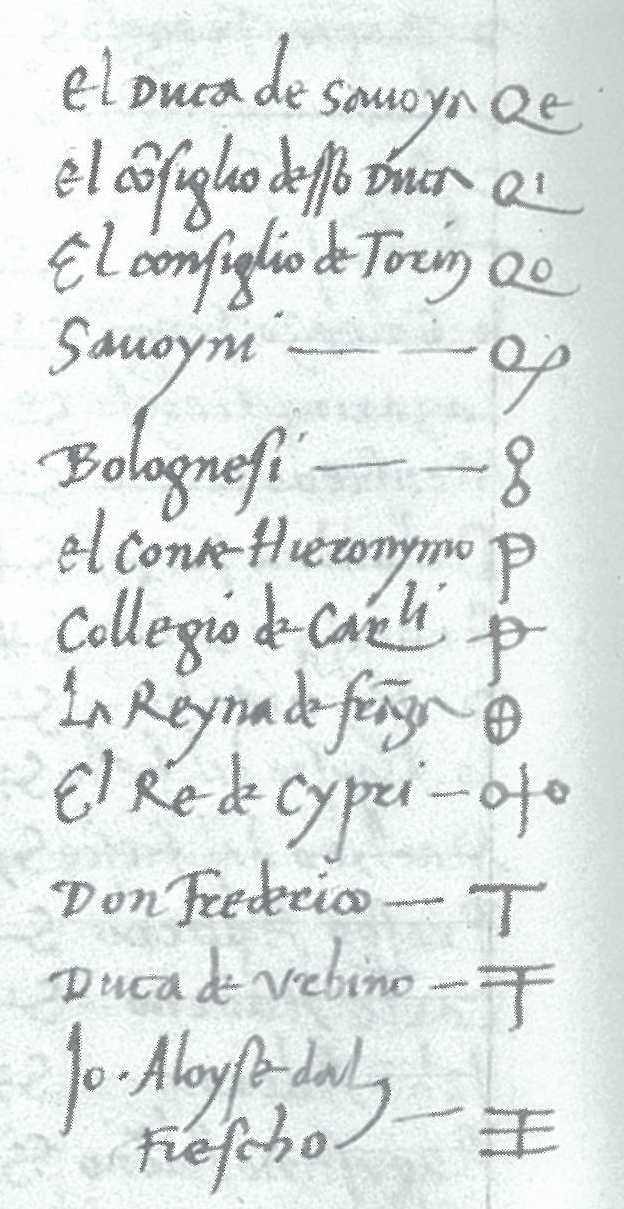 el Duca de Sauoya Qe
el cõsiglio desso Duca Q1
El consiglio de Torin Qo
Sauoyni
Bolognesi
el Conte Hieronymo
Collegio de Carli
La Reyna de
El Re de Cypri
Don Frederico
Duca de Vrbino
Jo. Aloyse dal
Fiescho